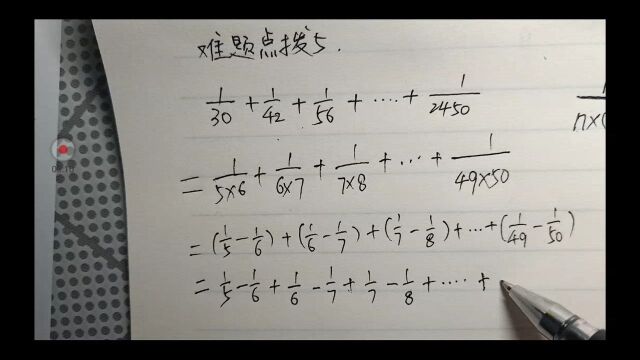 难题点拨5.
1/30 + 1/42 + 1/56 + ···· + 1/2450
= 1/5×6 + 1/6×7 + 1/7×8 + ··· + 1/49×50
= (1/5 - 1/6) + (1/6 - 1/7) + (1/7 - 1/8) + ··· + (1/49 - 1/50)
= 1/5 - 1/6 + 1/6 - 1/7 + 1/7 - 1/8 + ···· +